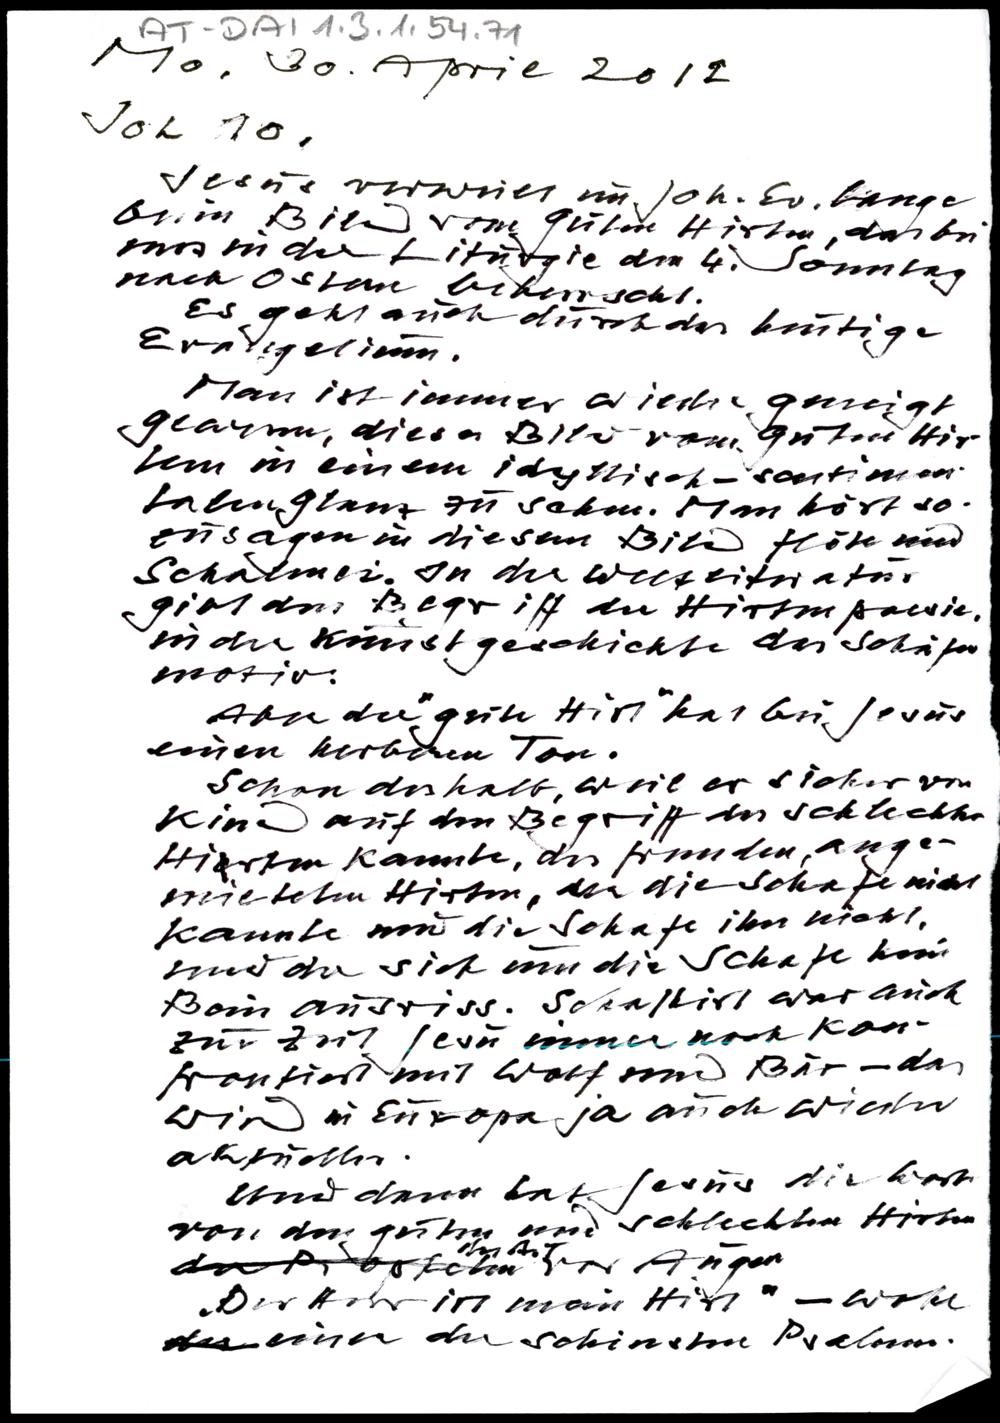 AT-DAI 1.3.1.54.71
Mo, 30. April 2012
Joh 10.
Jesus verweilt im Joh. Ev. lange
beim Bild vom guten Hirten, das bei
uns in der Liturgie den 4. Sonntag
nach Ostern beherrscht.
Es geht auch durch das heutige
Evangelium.
Man ist immer wieder geneigt
gewesen, dieses Bild vom guten Hir-
ten in einem idyllisch-sentimen-
talen Glanz zu sehen. Man hört so-
zusagen in diesem Bild Flöte und
Schalmei. In der Weltliteratur
gibt den Begriff der Hirtenpoesie,
in der Kunstgeschichte das Schäfer
motiv.
Aber der "gute Hirt" hat bei Jesus
einen herberen Ton.
Schon deshalb, weil er sicher von
Kind auf den Begriff des schlechten
Hirten kannte, des fremden, ange-
mieteten Hirten, der die Schafe nicht
kannte und die Schafe ihn nicht,
und der sich um die Schafe kein
Bein ausriss. Schafhirt war auch
zur Zeit Jesu immer noch kon-
frontiert mit Wolf und Bär – das
wird in Europa ja auch wieder
aktueller.
Und dann hat Jesus die Worte
von den guten und schlechten Hirten
der Propheten des A.T. vor Augen
„Der Herr ist mein Hirt" – wohl
der einer der schönsten Psalmen.